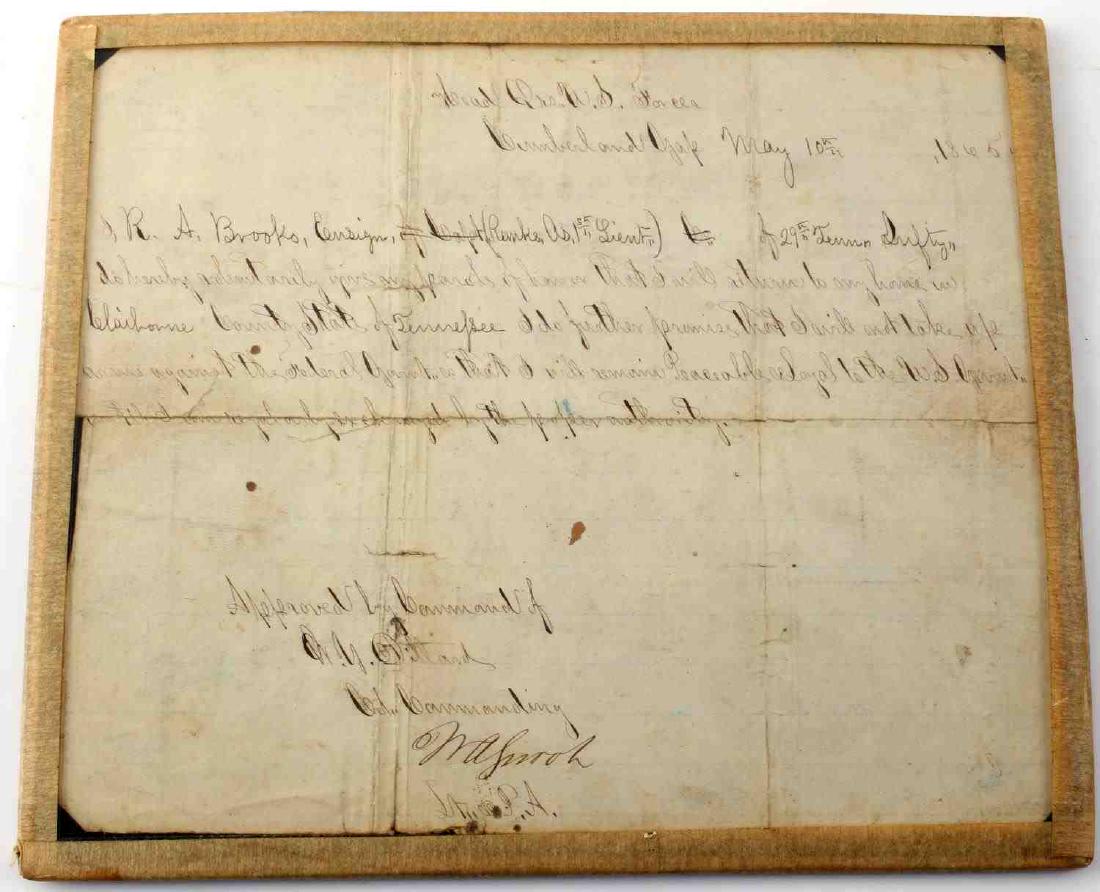 Head Qrs. U.S. Forces
Cumberland Gap May 10th, 1865
I, R. A. Brooks, Ensign, of Capt (Ranks As, 1st Lieut,,) of 29th Tenn,, Infty,,
do hereby voluntarily give my parole of honor that I will return to my home in
Claiborne County, State of Tennessee I do further promise that I will not take up
arms against the Federal Governt,, & that I will remain Peaceable & Loyal to the U.S. Governt,,
until I am regularly exchanged by the proper authority.
Approved by Command of
W. Y. Dillard
Col. Commanding
Lt, & P. A.